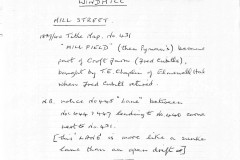 WINDMILL
MILL STREET.
Tithe Map. No 431
"MILL FIELD" (then Pymm's) became
part of Croft Farm (Fred Cubitt),
bought by T.E. Chaplin of Elmswell Hall
when Fred Cubitt retired.
N.B. notice No 445 "Lane" between
No 444 & 447 leading to No 446 corner
next to No 431.
[this LANE is more like a
lane than an open drift]